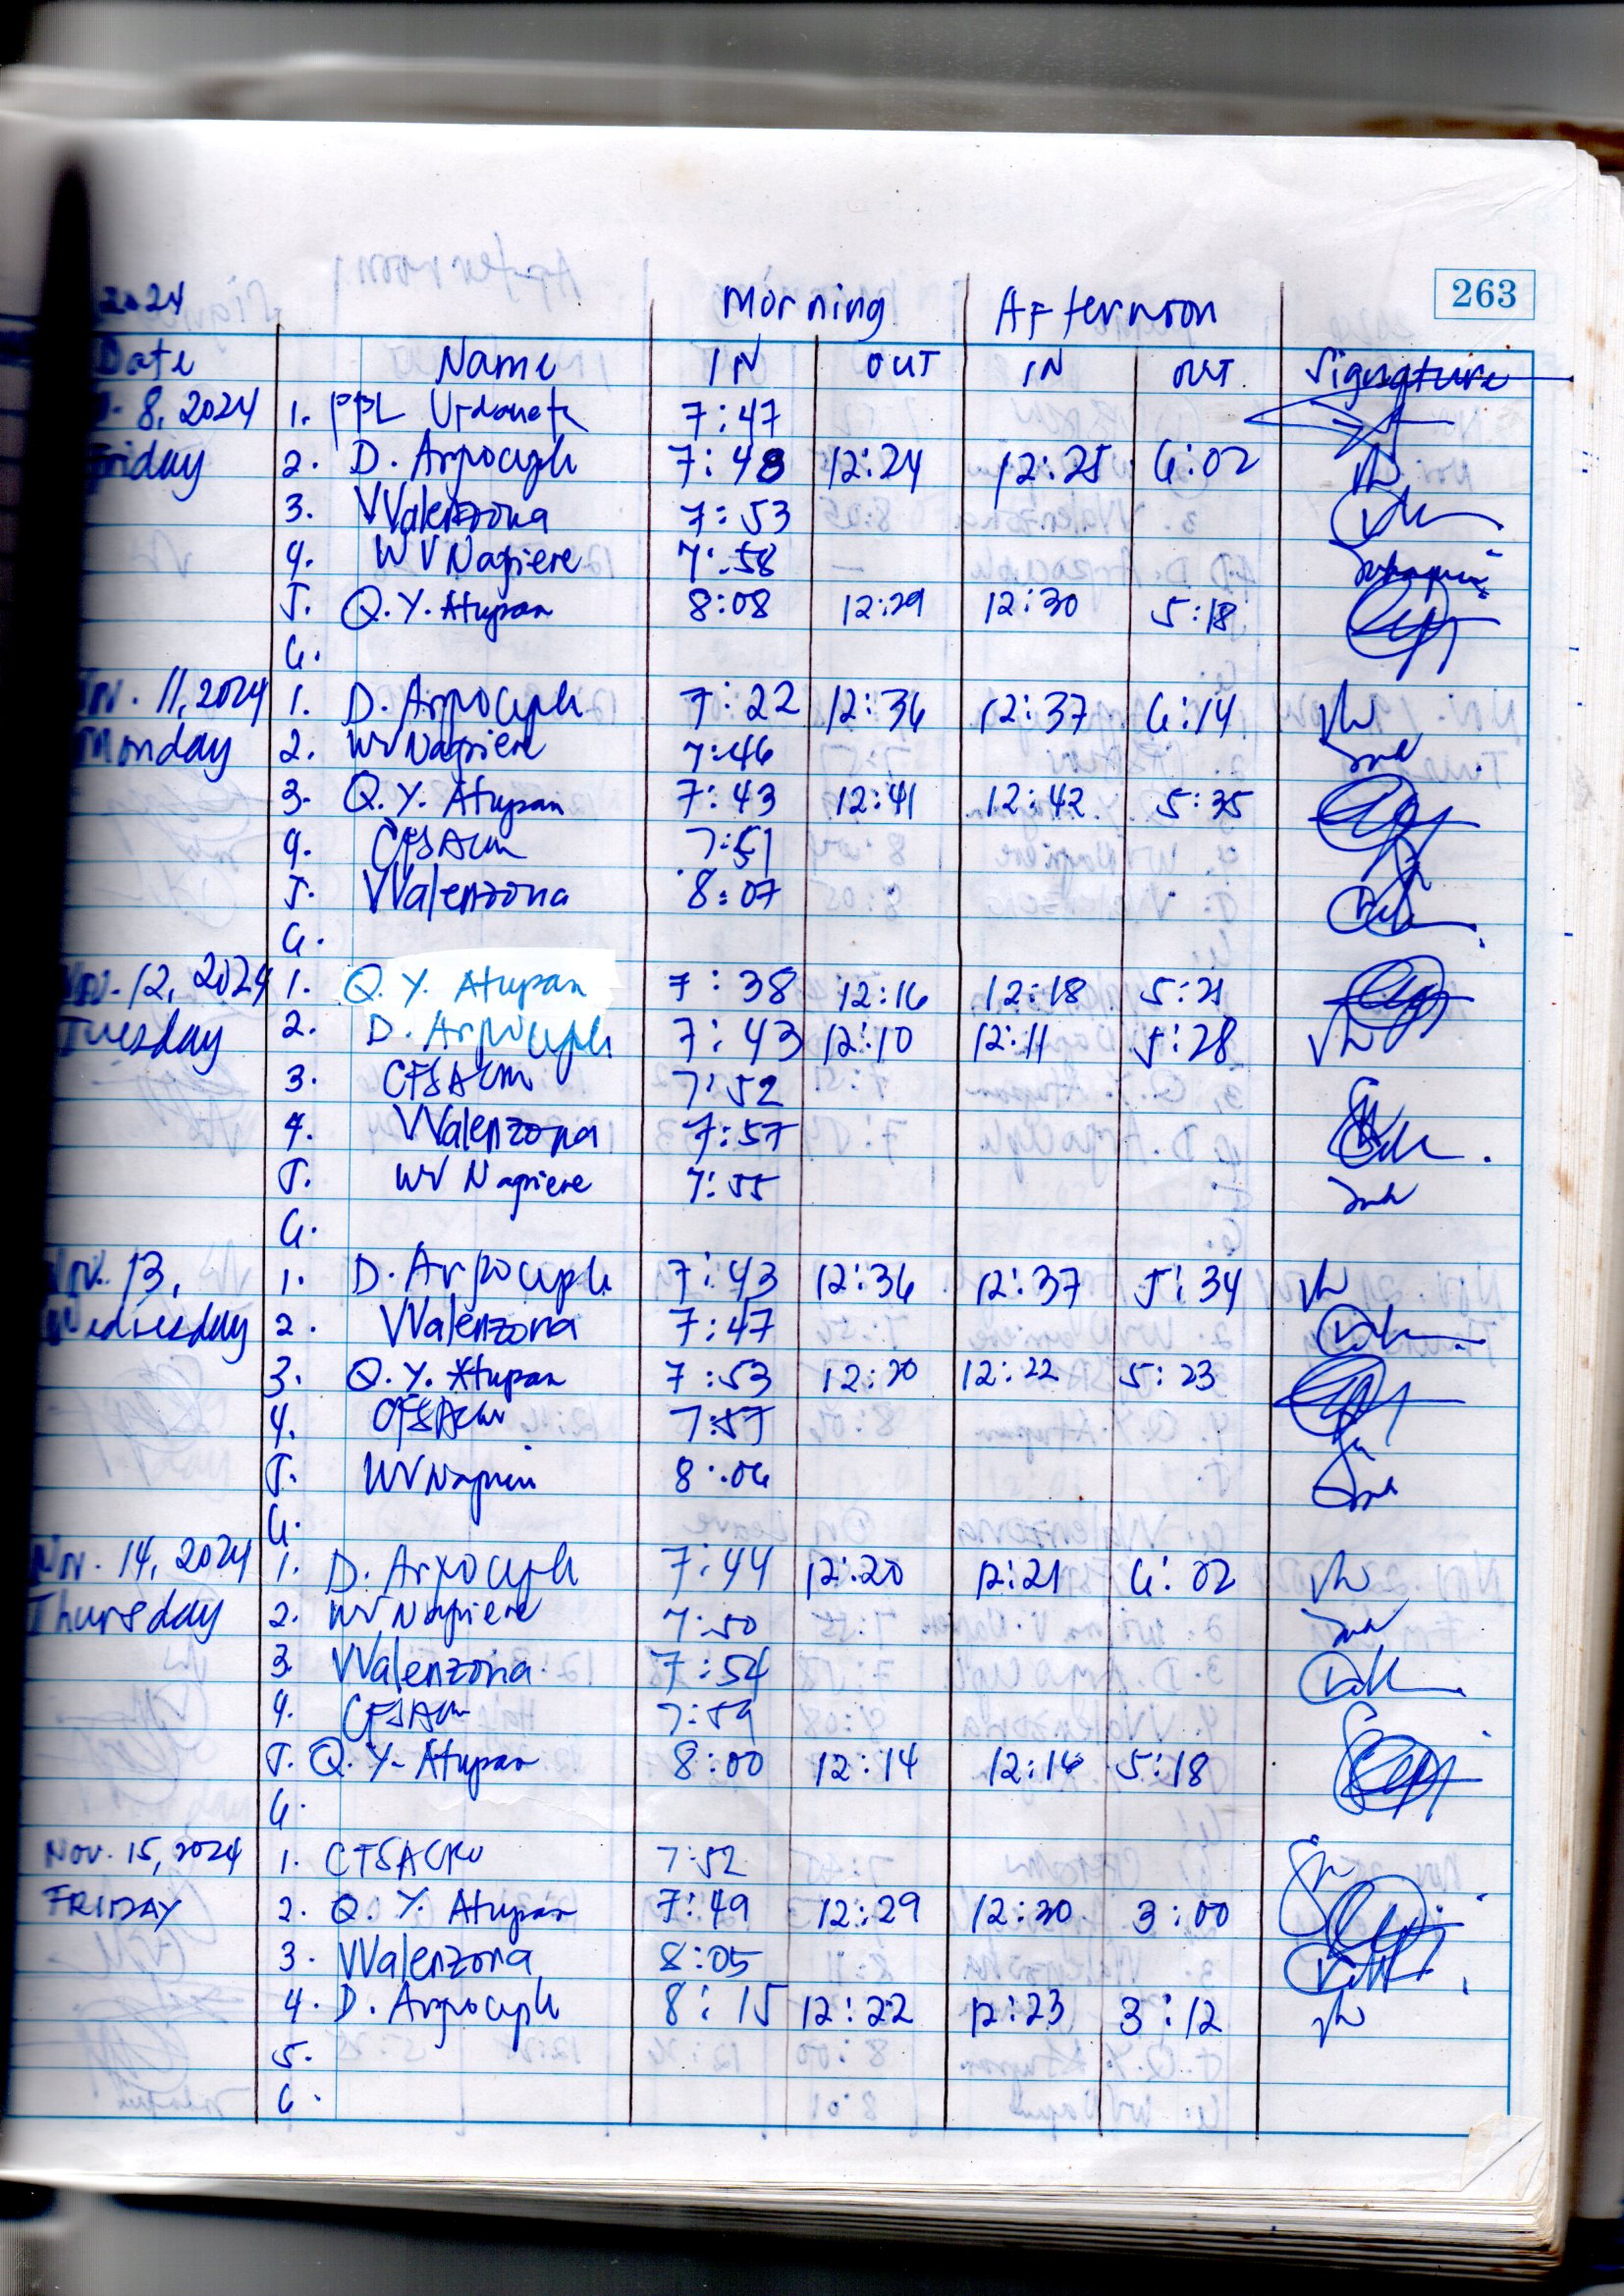 263
2024 Morning Afternoon
Date Name IN OUT IN OUT Signature
8, 2024 1. PPL Urdaneta 7:47
Friday 2. D. 7:48 12:24 12:25 6:02
3. VValenzona 7:53
4. WV Napiere 7:58
5. Q. Y. Atupan 8:08 12:29 12:30 5:18
6.
11, 2024 1. D. 7:22 12:36 12:37 6:14
Monday 2. WV Napiere 7:46
3. Q. Y. Atupan 7:43 12:41 12:42 5:35
4. 7:51
5. VValenzona 8:07
6.
Nov. 12, 2024 1. Q. Y. Atupan 7:38 12:16 12:18 5:21
Tuesday 2. D. 7:43 12:10 12:11 5:28
3. 7:52
4. VValenzona 7:57
5. WV Napiere 7:55
6.
Nov. 13, 1. D. 7:43 12:36 12:37 5:34
Wednesday 2. VValenzona 7:47
3. Q. Y. Atupan 7:53 12:20 12:22 5:23
4. 7:57
5. WV 8:06
6.
Nov. 14, 2024 1. D. 7:44 12:20 12:21 6:02
Thursday 2. WV Napiere 7:50
3. VValenzona 7:54
4. 7:59
5. Q. Y. Atupan 8:00 12:14 12:16 5:18
6.
Nov. 15, 2024 1. 7:52
FRIDAY 2. Q. Y. Atupan 7:49 12:29 12:30 3:00
3. VValenzona 8:05
4. D. 8:15 12:22 12:23 3:12
5.
6.